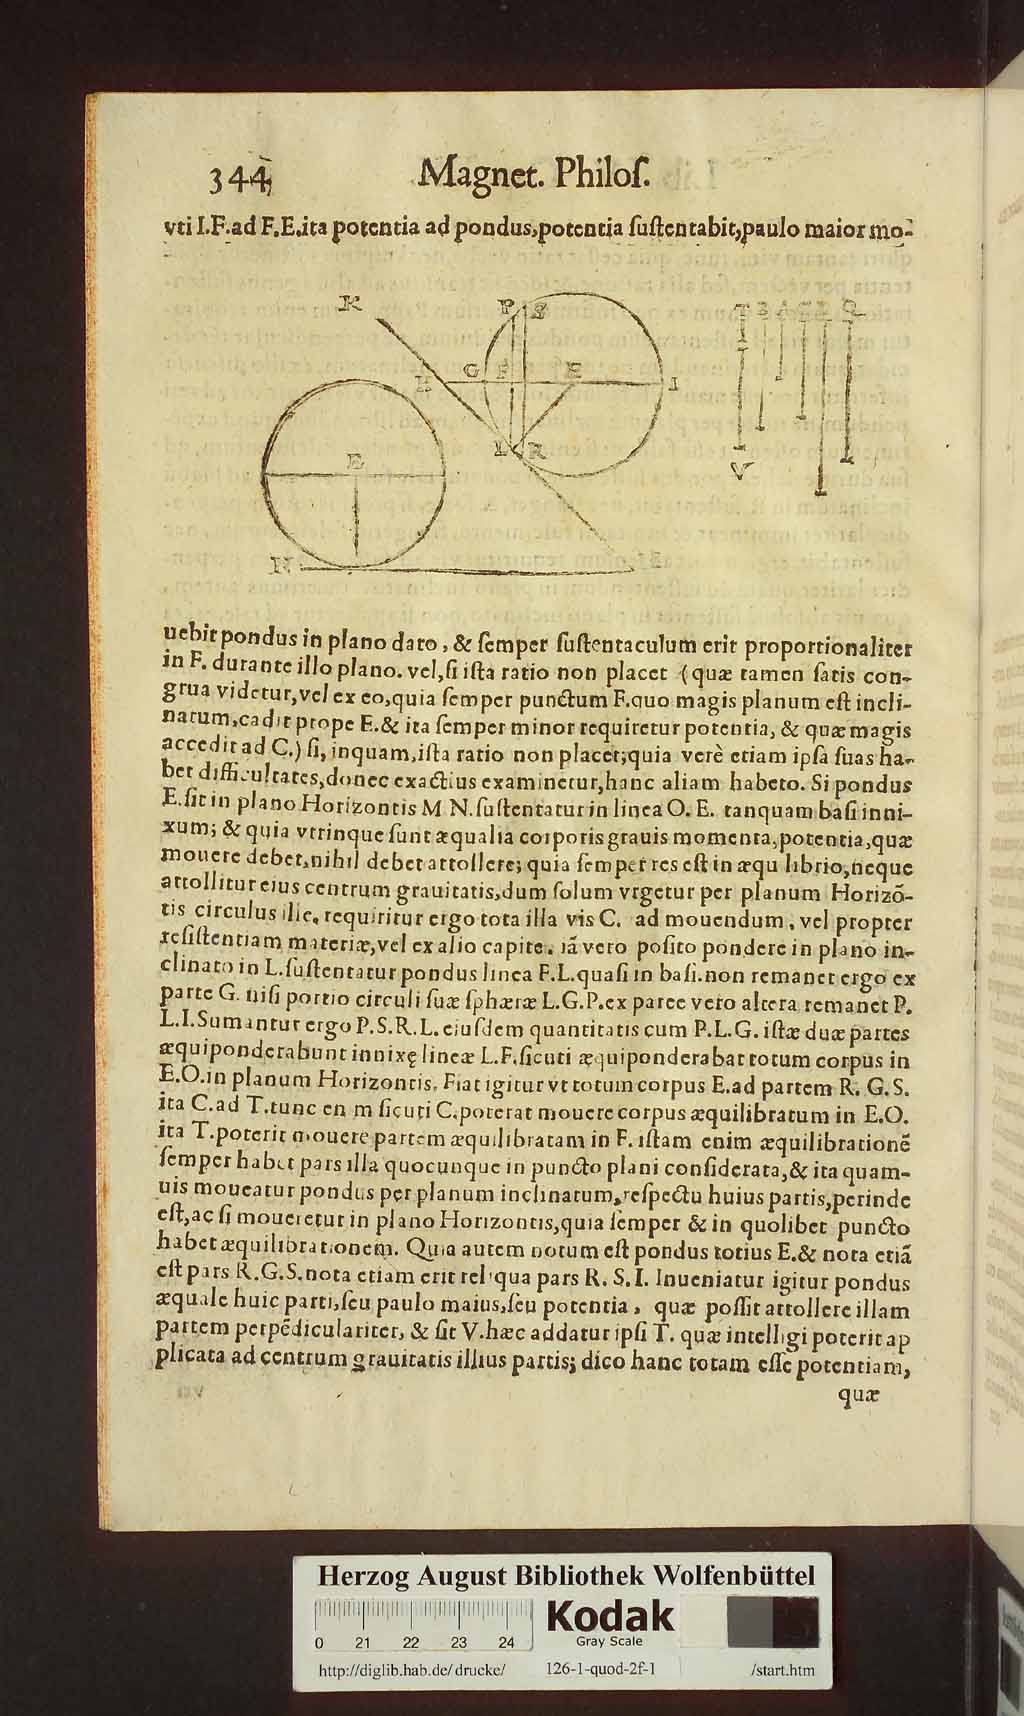 344
Magnet. Philoſ.
vti I.F.ad F.E.ita potentia ad pondus,potentia ſuſtentabit,paulo maior mo-
K
P S
T B A C R Q
H G F E I
L R
E
V
N
uebit pondus in plano dato, & ſemper ſuſtentaculum erit proportionaliter
in F. durante illo plano. vel,ſi iſta ratio non placet (quæ tamen ſatis con-
grua videtur,vel ex eo,quia ſemper punctum F.quo magis planum eſt incli-
natum,cadit prope E.& ita ſemper minor requiretur potentia, & quæ magis
accedit ad C.) ſi, inquam,iſta ratio non placet;quia verè etiam ipſa ſuas ha-
bet difficultates,donec exactius examinetur,hanc aliam habeto. Si pondus
E.ſit in plano Horizontis M N.ſuſtentatur in linea O. E. tanquam baſi inni-
xum; & quia vtrinque ſunt æqualia corporis grauis momenta,potentia,quæ
mouere debet,nihil debet attollere; quia ſemper res eſt in æqu librio,neque
attollitur eius centrum grauitatis,dum ſolum vrgetur per planum Horizō-
tis circulus ille, requiritur ergo tota illa vis C. ad mouendum, vel propter
reſiſtentiam materiæ,vel ex alio capite. iā vero poſito pondere in plano in-
clinato in L.ſuſtentatur pondus linea F.L.quaſi in baſi.non remanet ergo ex
parte G. niſi portio circuli ſuæ ſphæræ L.G.P.ex parte vero altera remanet P.
L.I.Sumantur ergo P.S.R.L. eiuſdem quantitatis cum P.L.G. iſtæ duæ partes
æquiponderabunt innixę lineæ L.F.ſicuti æquiponderabat totum corpus in
E.O.in planum Horizontis. Fiat igitur vt totum corpus E.ad partem R. G. S.
ita C.ad T.tunc en m ſicuti C.poterat mouere corpus æquilibratum in E.O.
ita T.poterit mouere partem æquilibratam in F. iſtam enim æquilibrationē
ſemper habet pars illa quocunque in puncto plani conſiderata,& ita quam-
uis moueatur pondus per planum inclinatum,reſpectu huius partis,perinde
eſt,ac ſi moueretur in plano Horizontis,quia ſemper & in quolibet puncto
habet æquilibrationem. Quia autem notum eſt pondus totius E.& nota etiā
eſt pars R.G.S.nota etiam erit rel qua pars R. S. I. Inueniatur igitur pondus
æquale huic parti,ſeu paulo maius,ſeu potentia, quæ poſſit attollere illam
partem perpēdiculariter, & ſit V.hæc addatur ipſi T. quæ intelligi poterit ap
plicata ad centrum grauitatis illius partis; dico hanc totam eſſe potentiam,
quæ
Herzog August Bibliothek Wolfenbüttel
Kodak
Gray Scale
0 21 22 23 24
http://diglib.hab.de/drucke/ 126-1-quod-2f-1 /start.htm